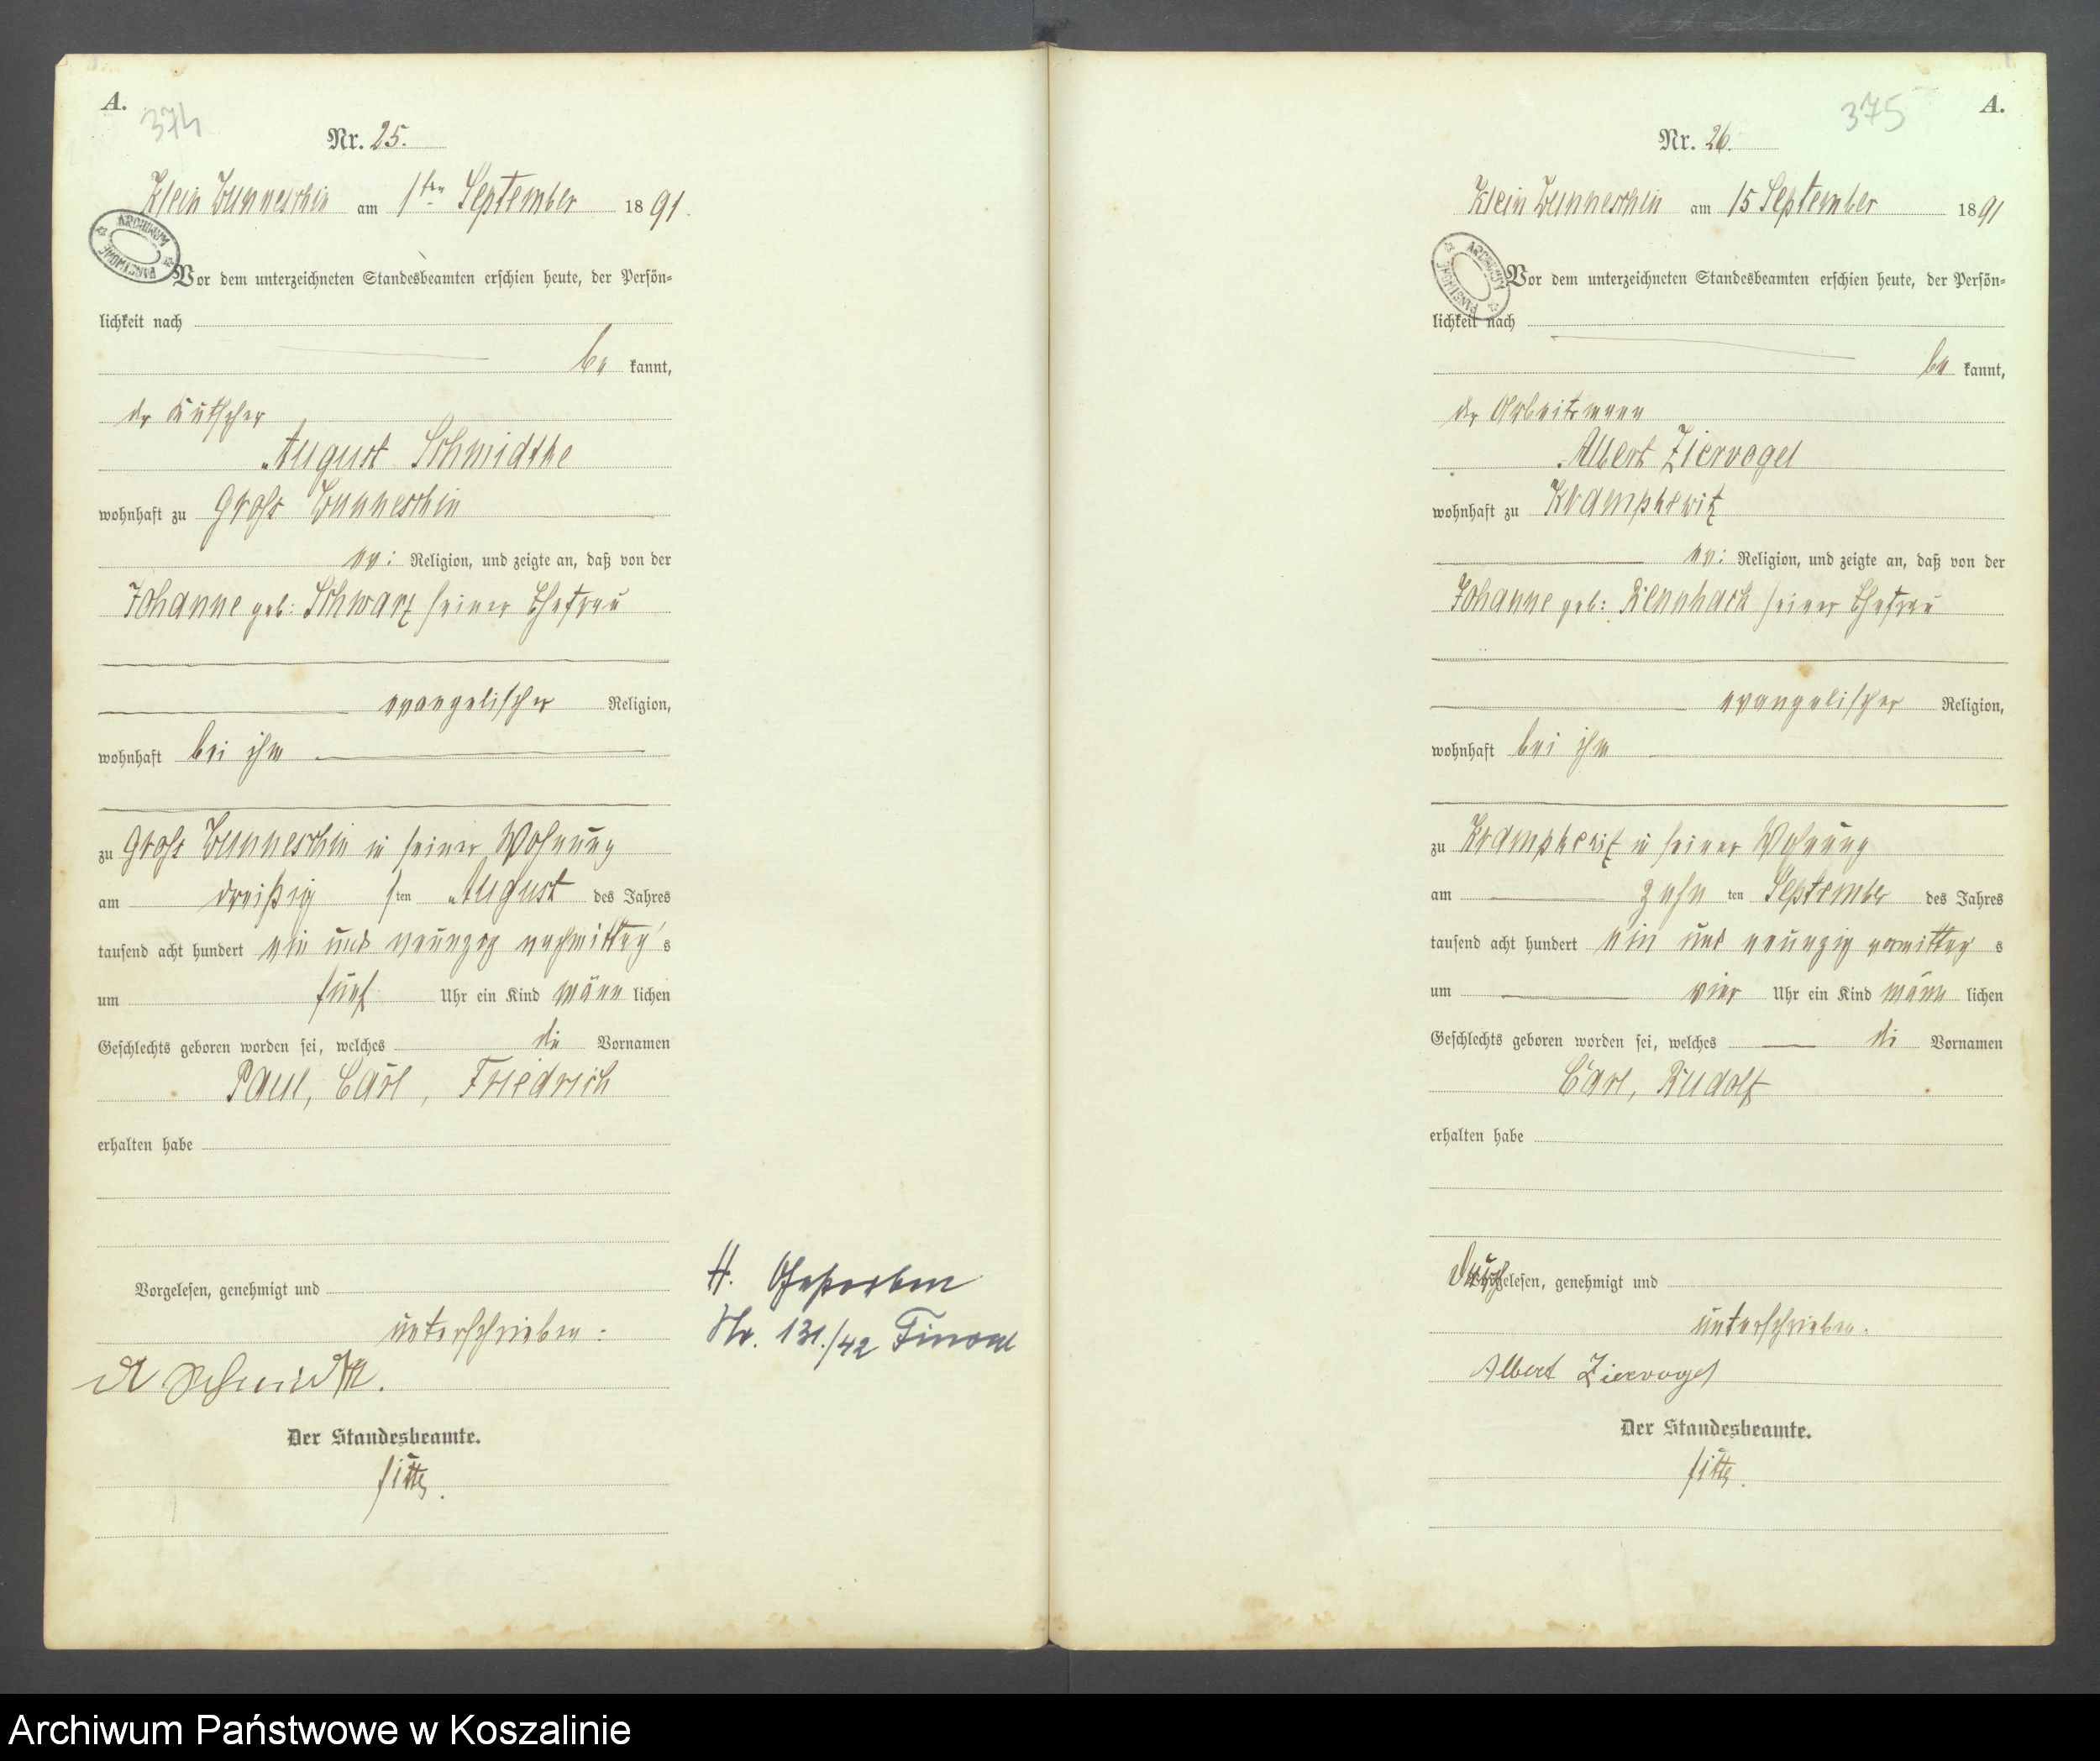 A.
374
Nr. 25.
Klein Wunneschin am 1ten September 1891.
ARCHIWUM PAŃSTWOWE
Vor dem unterzeichneten Standesbeamten erschien heute, der Persön=
lichkeit nach
be kannt,
der Kutscher
August Schmidtke
wohnhaft zu Groß Wunneschin
ev: Religion, und zeigte an, daß von der
Johanne geb: Schwarz seiner Ehefrau
evangelischer Religion,
wohnhaft bei ihm
zu Groß Wunneschin in seiner Wohnung
am dreißig sten August des Jahres
tausend acht hundert ein und neunzig nachmittag's
um fünf Uhr ein Kind männ lichen
Geschlechts geboren worden sei, welches die Vornamen
Paul, Carl, Friedrich
erhalten habe
Vorgelesen, genehmigt und
unterschrieben:
A Schmidtke.
Der Standesbeamte.
H. Gestorben
Nr. 131./42
375
A.
Nr. 26.
Klein Wunneschin am 15 September 1891
ARCHIWUM PAŃSTWOWE
Vor dem unterzeichneten Standesbeamten erschien heute, der Persön=
lichkeit nach
be kannt,
der Arbeitsmann
Albert Ziervogel
wohnhaft zu Krampkewitz
ev: Religion, und zeigte an, daß von der
Johanne geb: seiner Ehefrau
evangelischer Religion,
wohnhaft bei ihm
zu Krampkewitz in seiner Wohnung
am zehn ten September des Jahres
tausend acht hundert ein und neunzig vormittag s
um vier Uhr ein Kind männ lichen
Geschlechts geboren worden sei, welches die Vornamen
Carl, Rudolf
erhalten habe
Vorgelesen, genehmigt und
unterschrieben.
Albert Ziervogel
Der Standesbeamte.
Archiwum Państwowe w Koszalinie